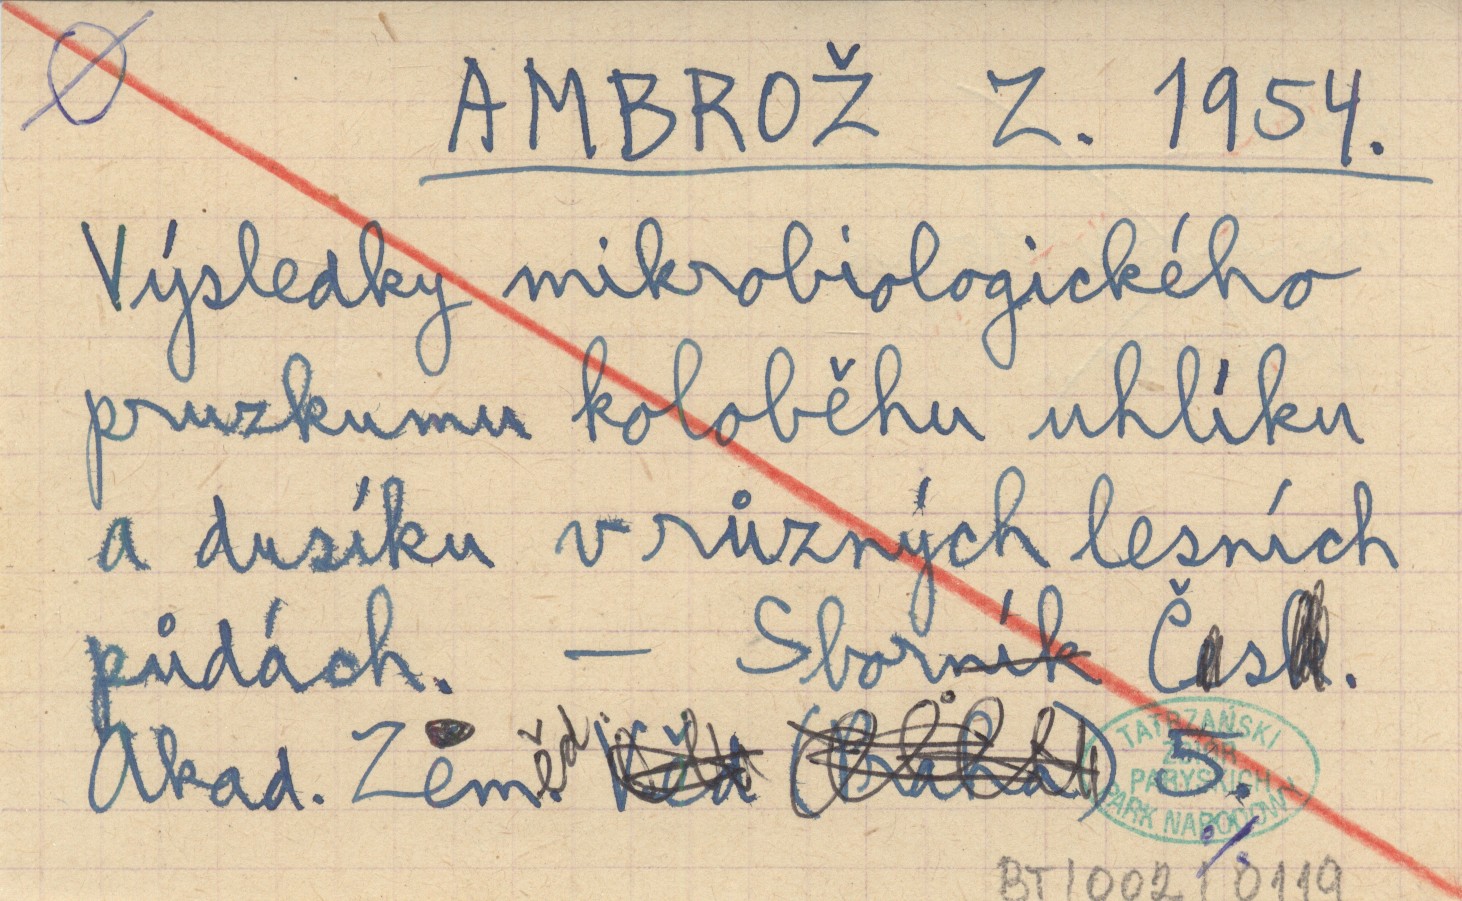 AMBROŽ Z. 1954.
Výsledky mikrobiologického
pruzkumu koloběhu uhlíku
a dusíku v různých lesních
půdách. — Sborník Čas.
Akad. Zeměd ( ) 5.
TATRZAŃSKI
PARK NARODOWY
BT/002/0119